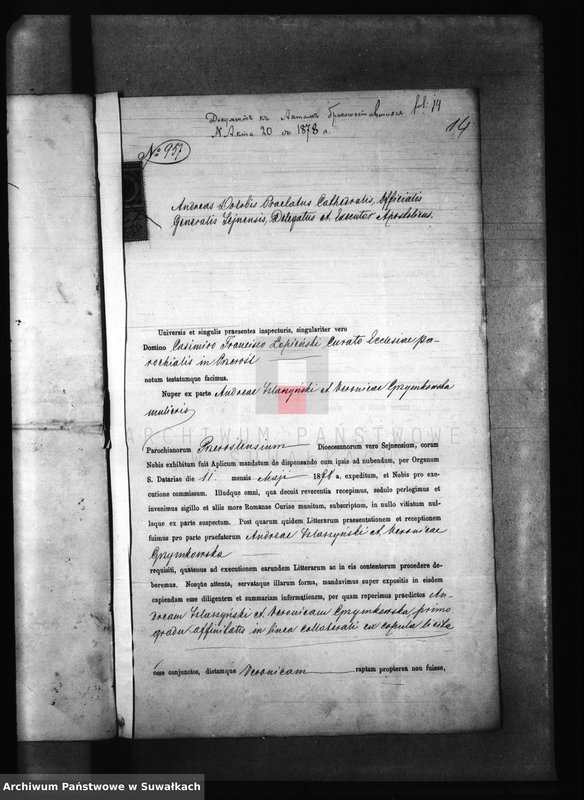 Документъ къ Актамъ бракосочетавшихся fol: 14
N Акта 20 съ 1878 г.
14
№ 957
Andreas Dorobis Praelatus Cathedralis, Officialis
Generalis Sejnensis, Delegatus et Executor Apostolicus.
Universis et singulis praesentes inspecturis, singulariter vero
Domino Casimiro Francisco Łapieński Curato Ecclesiae pa-
rochialis in Przerośl
notum testatumque facimus.
Nuper ex parte Andreae Szlaszyński et Veronicae Grzymkowska
mulieris
ARCHIWUM PAŃSTWOWE
Parochianorum Przeroslensium Dioecesanorum vero Sejnensium, coram
Nobis exhibitum fuit Aplicum mandatum de dispensando cum ipsis ad nubendum, per Organum
S. Datariae die 11 mensis Maji 1878 a. expeditum, et Nobis pro exe-
cutione commissum. Illudque omni, qua decuit reverentia recepimus, sedulo perlegimus et
invenimus sigillo et aliis more Romanae Curiae munitum, subscriptum, in nullo vitiatum nul-
laque ex parte suspectum. Post quarum quidem Litterarum praesentationem et receptionem
fuimus pro parte praefatorum Andreae Szlaszyński et Veronicae
Grzymkowska
requisiti, quatenus ad executionem earundem Litterarum ac in eis contentorum procedere de-
beremus. Nosque attenta, servataque illarum forma, mandavimus super expositis in eisdem
capiendam esse diligentem et summariam informationem, per quam reperimus praedictos An-
dream Szlaszyński et Veronicam Grzymkowska, primo
gradu affinitatis in linea collaterali ex copula licita
esse conjunctos, dictamque Veronicam raptam propterea non fuisse,
Archiwum Państwowe w Suwałkach